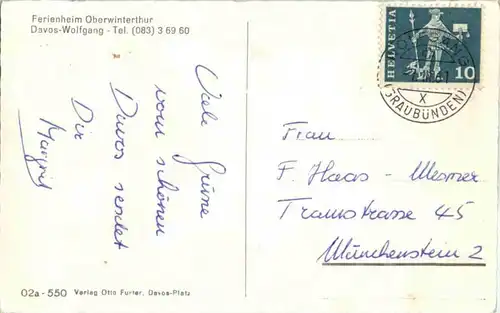 Ferienheim Oberwinterthur
Davos-Wolfgang - Tel. (083) 3 69 60
Viele Grüsse
vom schönen
Davos sendet
Dir
Margrit
HELVETIA
10
(GRAUBÜNDEN)
X
Frau
F. Haas - Mesmer
Tramstrasse 45
Münchenstein 2
02a - 550 Verlag Otto Furter, Davos-Platz